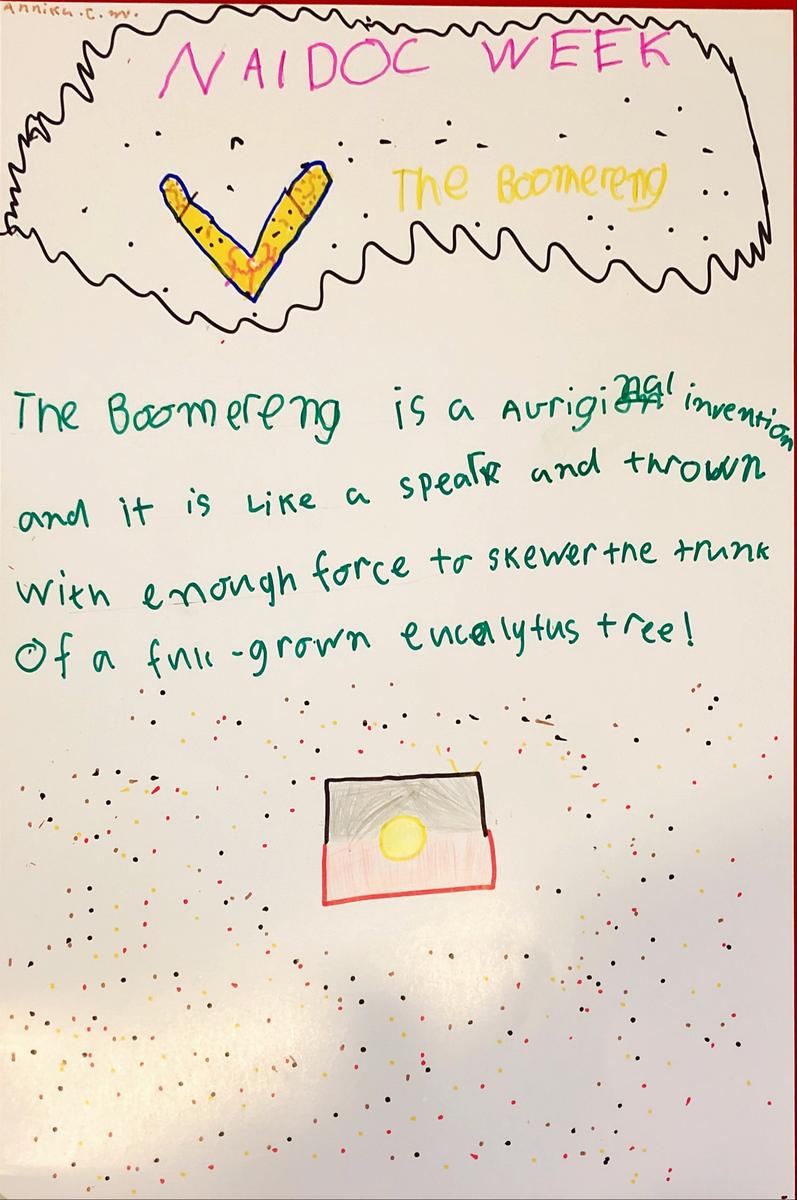 Annika.C.M.
NAIDOC WEEK
The Boomereng
The Boomereng is a Auriginal invention
and it is Like a spear and thrown
with enough force to skewer the trunk
Of a full-grown eucalytus tree!